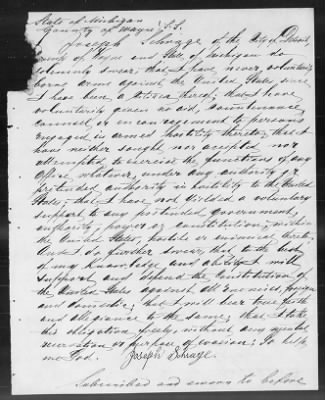 State of Michigan
County of Wayne, S.S.
I Joseph Schrage of the City of Detroit,
County of Wayne and State of Michigan do
solemnly swear; that I have never, voluntarily
borne arms against the United States since
I have been a citizen thereof; that I have
voluntarily given no aid, countenance
counsel, or encouragement to persons
engaged in armed hostility thereto; that I
have neither sought nor accepted nor
attempted to exercise the functions of any
Office whatever, under any authority or
pretended authority in hostility to the United
States; that I have not yielded a voluntary
support to any pretended government,
authority, power or constitution, within
the United States, hostile or inimical thereto.
And I do further swear, that to the best
of my knowledge and ability I will
support and defend the Constitution of
the United States against all enemies, foreign
and domestic; that I will bear true faith
and allegiance to the same; that I take
this obligation freely, without any mental
reservation or purpose of evasion; So help
me God.
Joseph Schrage.
Subscribed and sworn to before